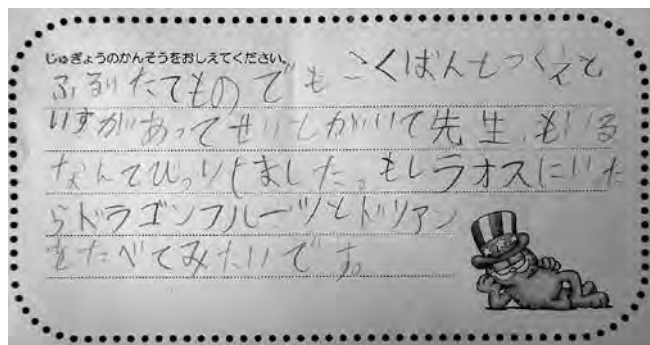 じゅぎょうのかんそうをおしえてください。
ふるいたてものでも こくばんもつくえも
いすがあってせいとがいて先生もいる
なんてびっりしました。もしラオスにいた
らドラゴンフルーツとドリアン
をたべてみたいです。